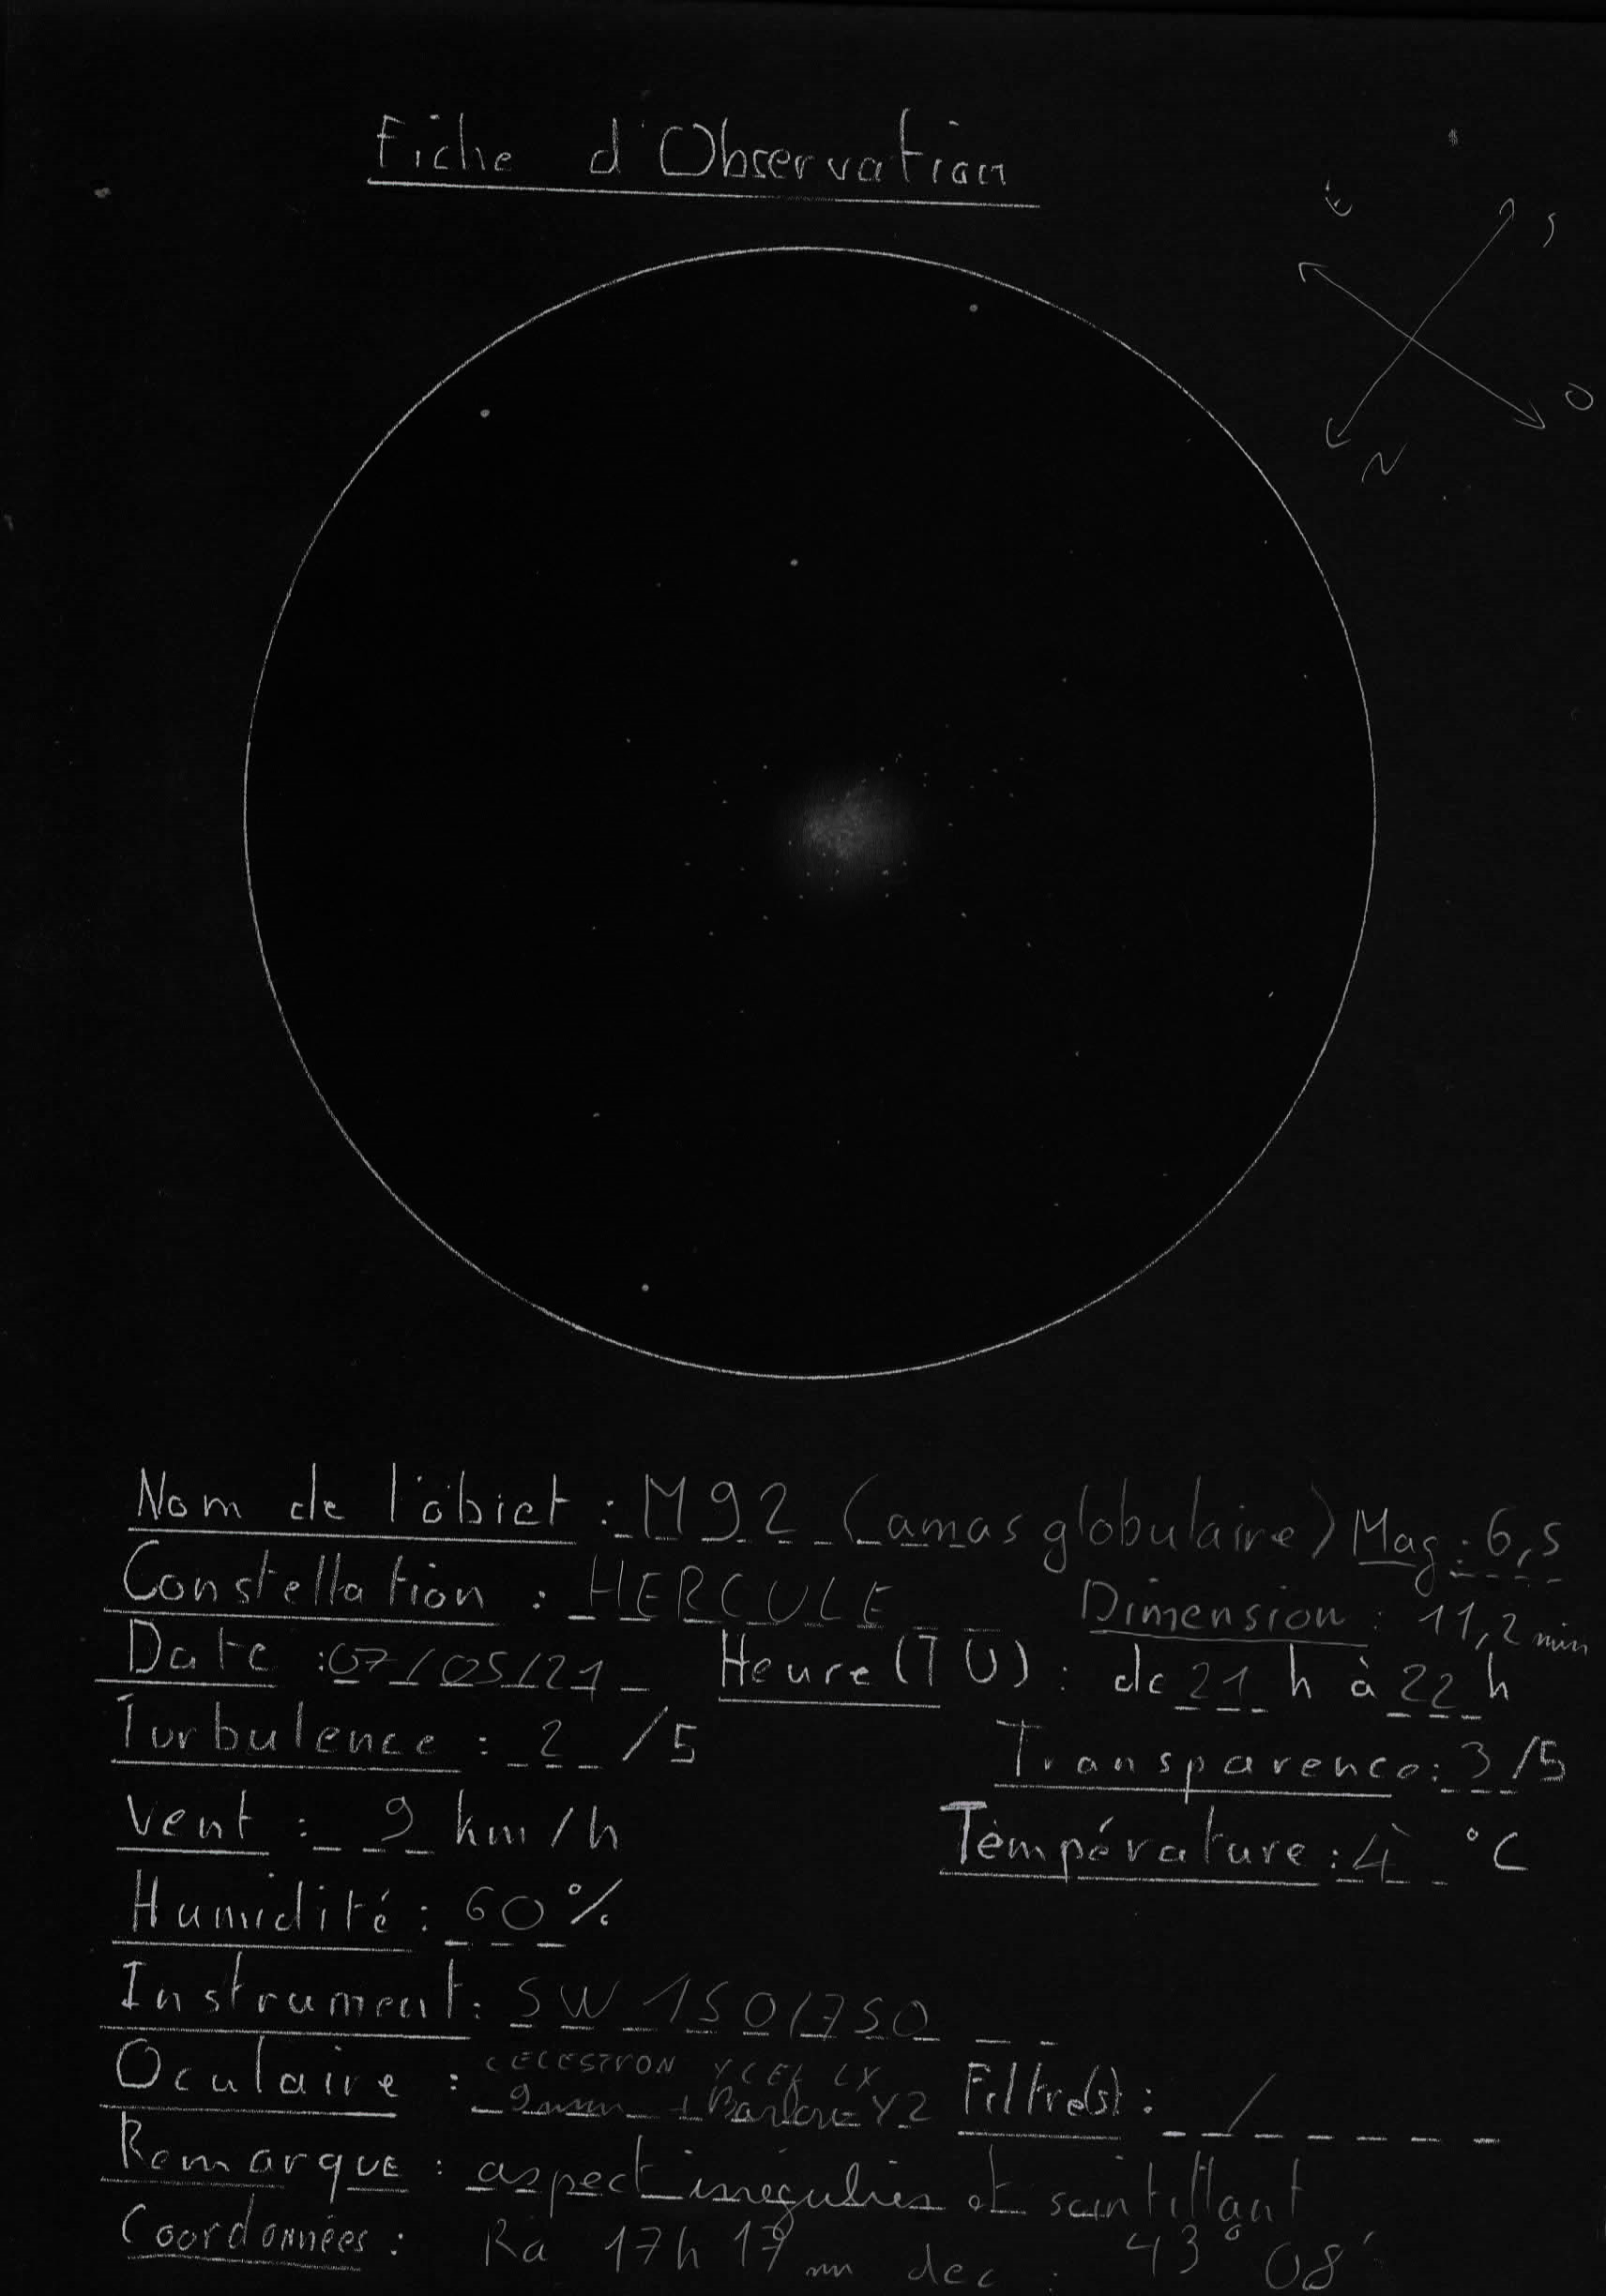 Fiche d'Observation
E
S
O
N
Nom de l'objet : M92 (amas globulaire) Mag : 6,5
Constellation : HERCULE Dimension : 11,2 min
Date : 07/05/21 Heure (TU) : de 21 h à 22 h
Turbulence : 2 /5 Transparence : 3 /5
Vent : 9 km/h Température : 4 °C
Humidité : 60 %
Instrument : SW 150/750
Oculaire : CELESTRON XCEL LX Filtre(s) : /
9mm + Barlow X2
Remarque : aspect irrégulier et scintillant
Coordonnées : Ra 17h 17 mn dec : 43° 08'